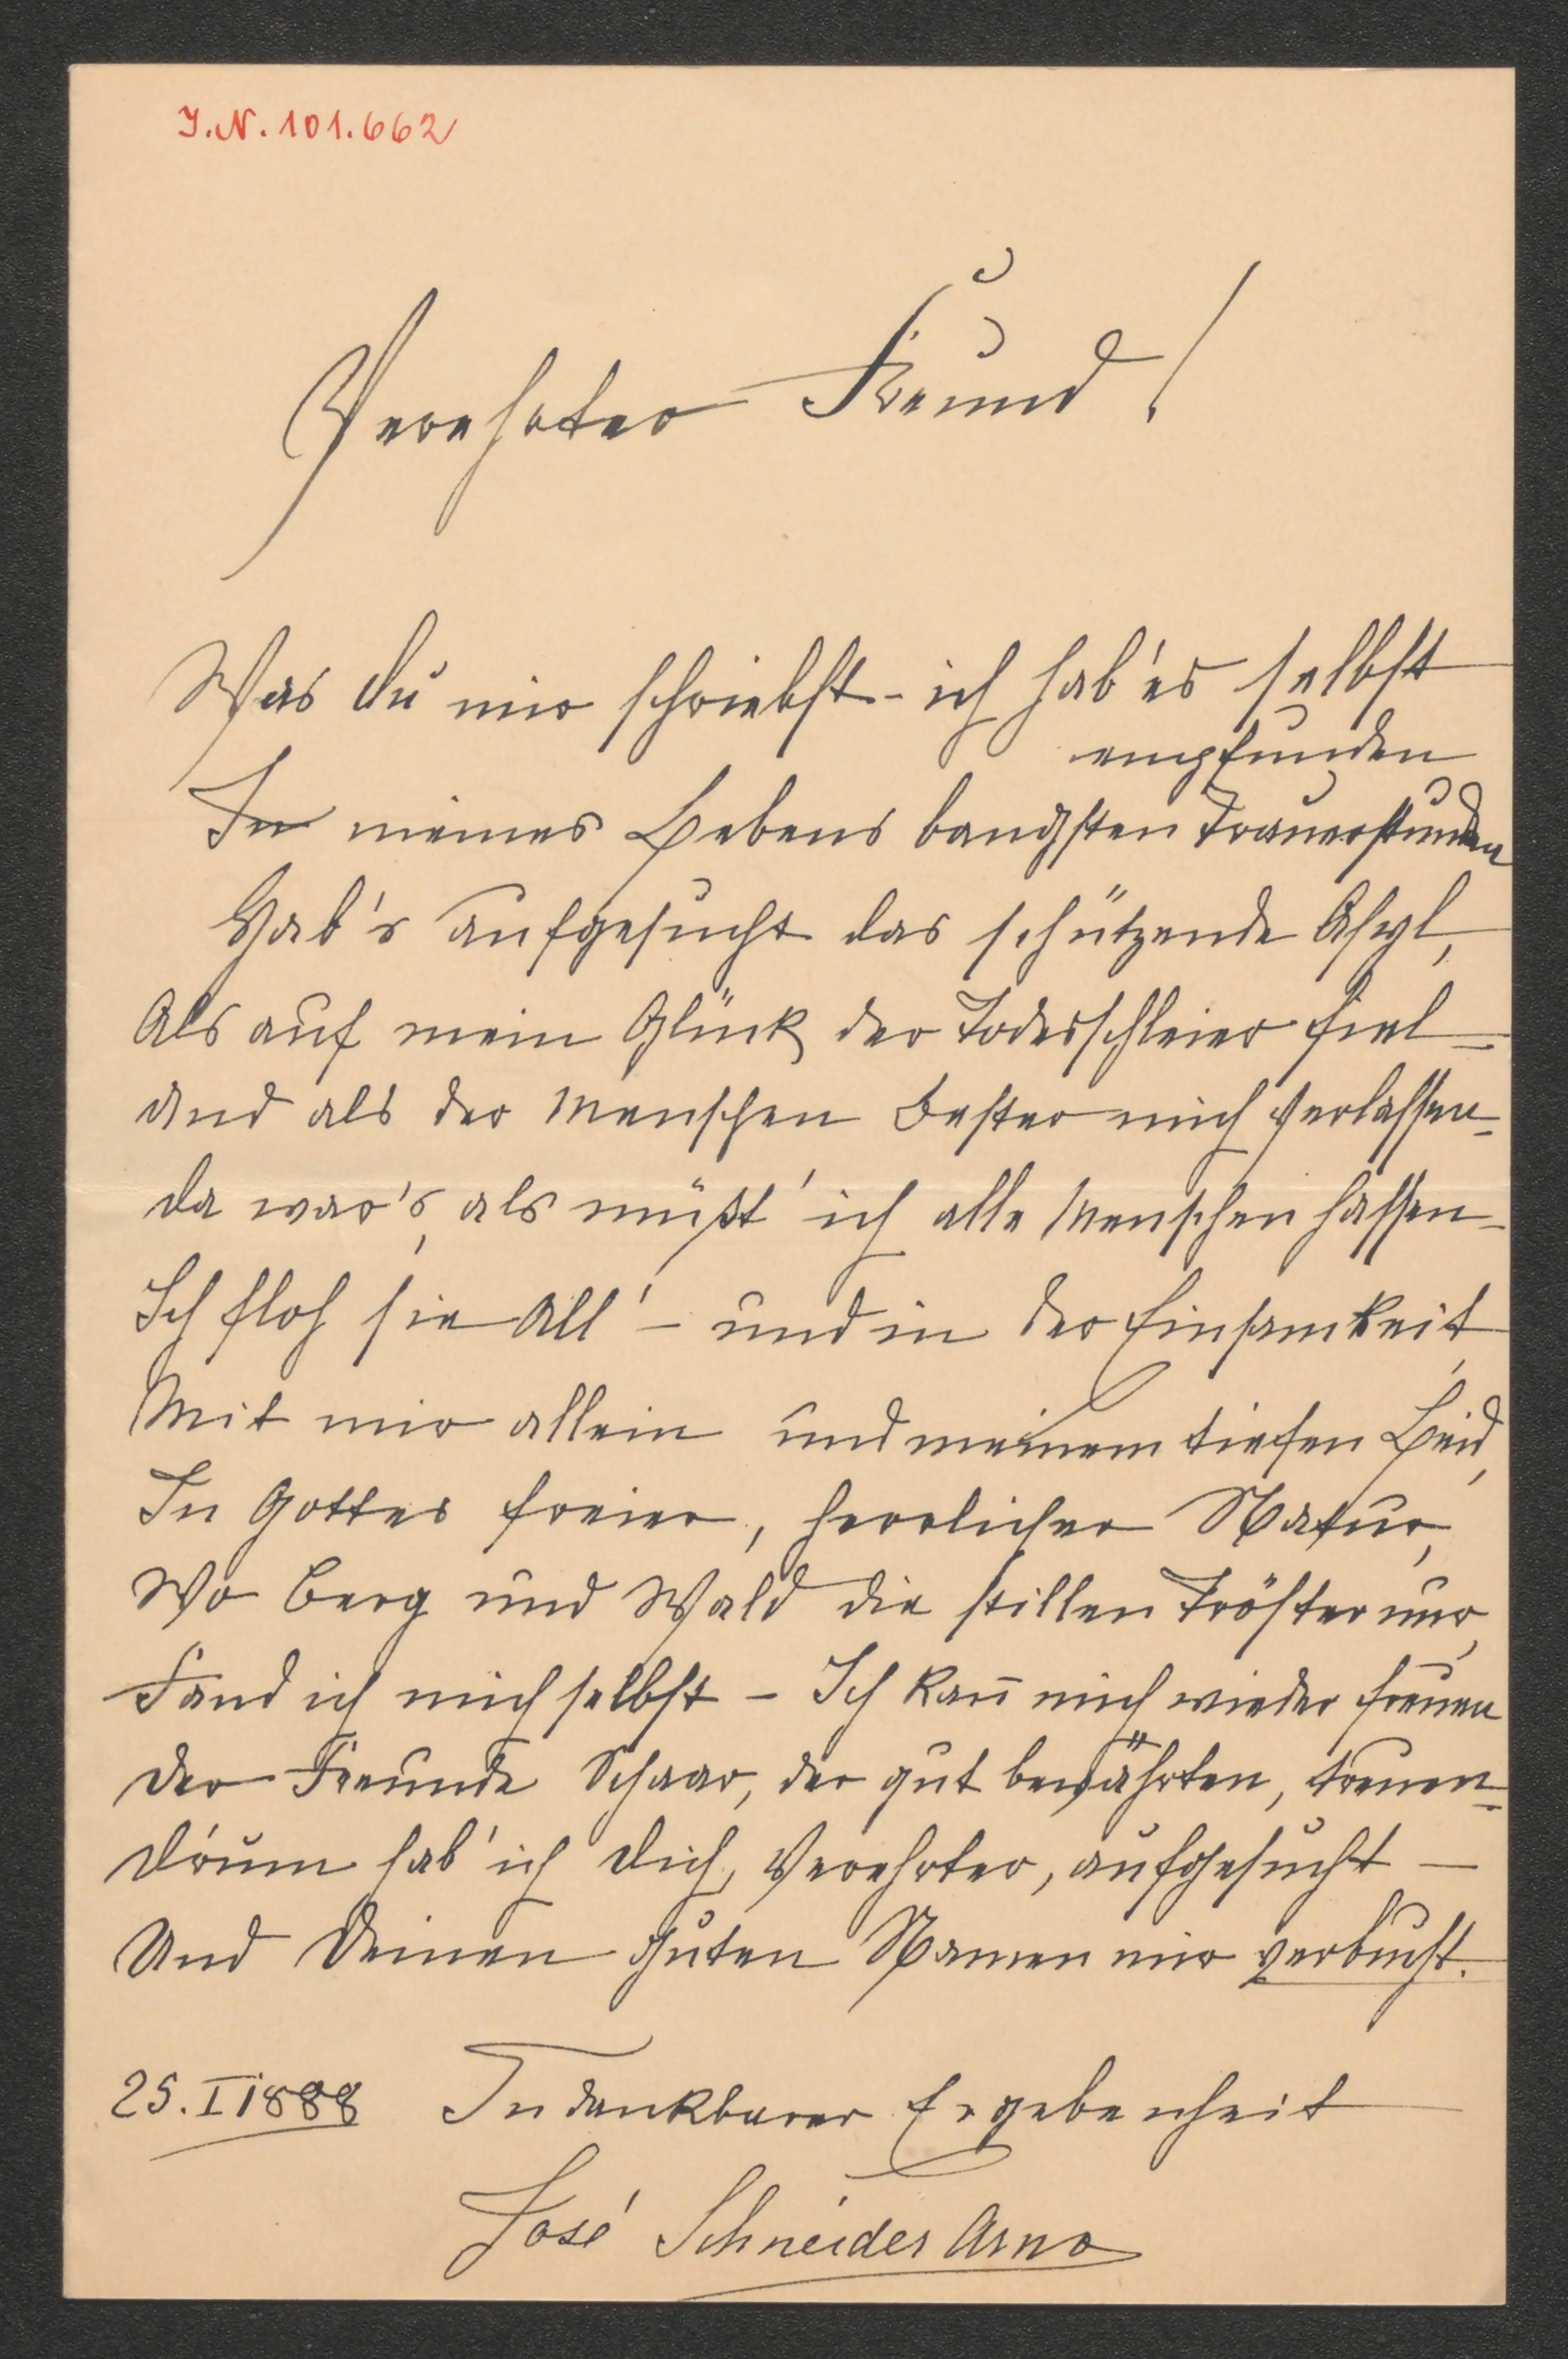 J.N. 101.662
Verehrter Freund!
Was Du mir schriebst – ich hab' es selbst
empfunden
In meines Lebens bangsten Trauerstunden
Hab's aufgesucht das schützende Asyl,
Als auf mein Glück der Todesschleier fiel –
Und als der Menschen Bester mich verlassen –
Da war's, als müßt' ich alle Menschen hassen –
Ich floh sie All' – und in der Einsamkeit,
Mit mir allein und meinem tiefen Leid,
In Gottes freier, herrlicher Natur,
Wo Berg und Wald die stillen Tröster nur,
Fand ich mich selbst – Ich kan̄ mich wieder freuen
Der Freunde Schaar, der gut bewährten, treuen –
D'rum hab' ich Dich, Verehrter, aufgesucht –
Und Deinen guten Namen mir verbucht.
25. I 1888 In dankbarer Ergebenheit
José Schneider Arno